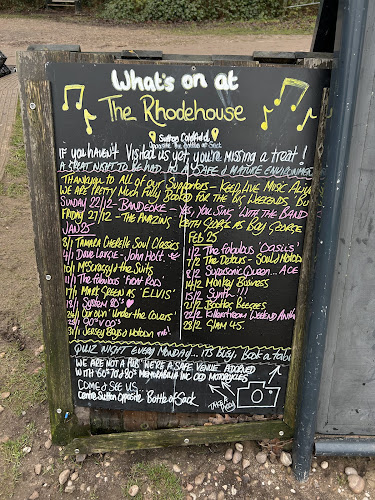 What's on at
The Rhodehouse
Sutton Coldfield,
opposite the Bottle of Sack
IF you HAVEN'T Visited us yet, you're MISSING a treat!
A GREAT NIGHT TO BE HAD, IN A SAFE & MATURE ENVIRONMENT
THANKYOU TO ALL OF OUR SUPPORTERS - KEEP LIVE MUSIC ALIVE
WE ARE PRETTY MUCH FULLY BOOKED FOR THE BIG WEEKENDS, BUT
SUNDAY 22/12 - BANDEOKE - YES, YOU SING WITH THE BAND
FRIDAY 27/12 - THE AMAZING KEITH GEORGE AS BOY GEORGE
JAN 25
TAMARA CHERELLE Soul Classics
4/1 DAVE LARGIE - JOHN HOLT.
10/1 McScruffy & the Suits
11/1 The fabulous
17/1 MARK GREEN AS 'ELVIS'
18/1 System 80's
24/1 Our own 'Under the Covers'
25/1 90's v 00's
31/1 Jersey Boys & Motown
FEB 25
1/2 The Fabulous 'Oasiis'
7/2 The Detours - SOUL & MOTOWN
8/2 Supersonic Queen... ACE
14/2 Monkey Business
15/2 Synth...!!!
21/2 Bootleg Beegees
22/2 Killerstream Weekend Anthems
28/2 GLAM 45.
QUIZ NIGHT EVERY MONDAY... ITS BUSY, BOOK A TABLE
WE ARE NOT A PUB, WE'RE A SAFE VENUE ADORNED
WITH 60'S 70'S & 80'S MEMORABILIA INC OLD MOTORCYCLES
COME & SEE US...
Centre Sutton opposite Bottle of Sack
TAKE A